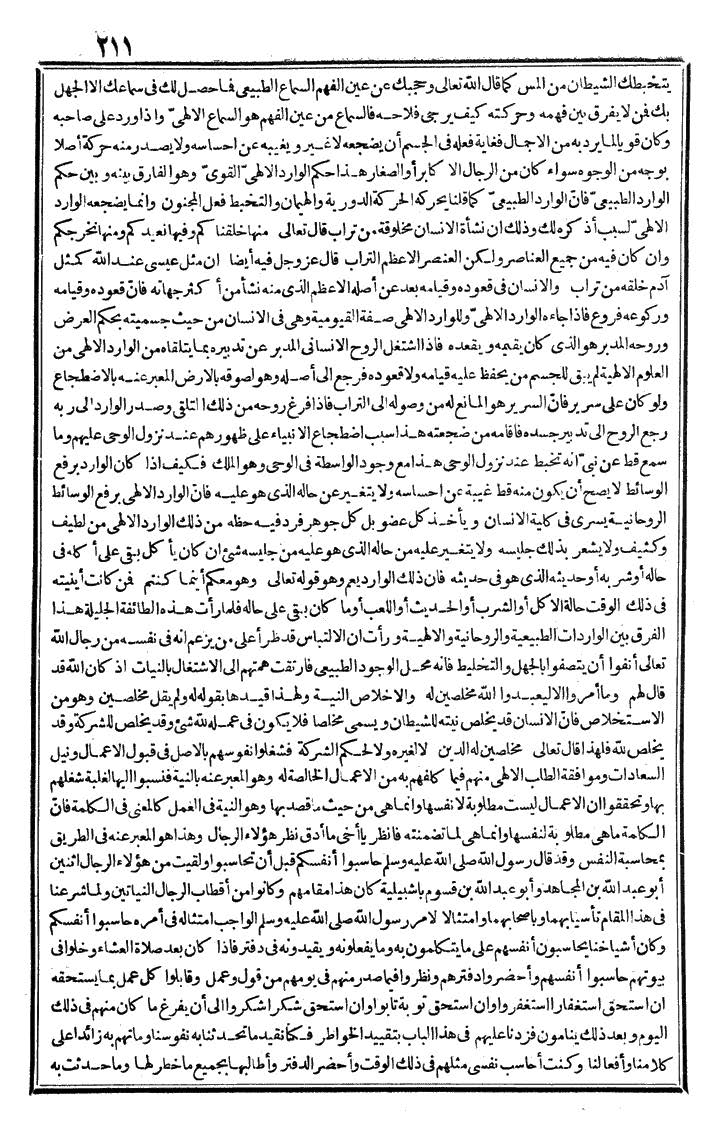 ٢١١
يتخبطك الشيطان من المس كما قال الله تعالى وحجبك عن عين الفهم السماع الطبيعي فما حصل لك في سماعك الا الجهل
بك فمن لا يفرق بين فهمه وحركته كيف يرجى فلاحه فالسماع من عين الفهم هو السماع الالهيّ واذا ورد على صاحبه
وكان قويا لما يرد به من الاجمال فغاية فعله في الجسم أن يضجعه لا غير ويغيبه عن احساسه ولا يصدر منه حركة أصلا
بوجه من الوجوه سواء كان من الرجال الا كابر أو الصغار هذا حكم الوارد الالهيّ القويّ وهو الفارق بينه وبين حكم
الوارد الطبيعيّ فانّ الوارد الطبيعيّ كما قلنا يحركه الحركة الدورية والهيمان والتخبط فعل المجنون وانما يضجعه الوارد
الالهيّ لسبب أذكره لك وذلك ان نشأة الانسان مخلوقة من تراب قال تعالى منها خلقناكم وفيها نعيدكم ومنها نخرجكم
وان كان فيه من جميع العناصر ولكن العنصر الاعظم التراب قال عز وجل فيه أيضا ان مثل عيسى عند الله كمثل
آدم خلقه من تراب والانسان في قعوده وقيامه بعد عن أصله الاعظم الذى منه نشأ من أكثر جهاته فانّ قعوده وقيامه
وركوعه فروع فاذا جاءه الوارد الالهيّ وللوارد الالهى صفة القيومية وهى في الانسان من حيث جسميته بحكم العرض
وروحه المدبر هو الذى كان يقيمه ويقعده فاذا اشتغل الروح الانسانى المدبر عن تدبيره بما يتلقاه من الوارد الالهى من
العلوم الالهية لم يبق للجسم من يحفظ عليه قيامه ولا قعوده فرجع الى أصله وهو لصوقه بالارض المعبر عنه بالاضطجاع
ولو كان على سرير فانّ السرير هو المانع له من وصوله الى التراب فاذا فرغ روحه من ذلك التلقى وصدر الوارد الى ربه
رجع الروح الى تدبير جسده فاقامه من ضجعته هذا سبب اضطجاع الانبياء على ظهورهم عند نزول الوحى عليهم وما
سمع قط عن نبىّ انه تخبط عند نزول الوحى هذا مع وجود الواسطة في الوحى وهو الملك فكيف اذا كان الوارد برفع
الوسائط لا يصح أن يكون منه قط غيبة عن احساسه ولا يتغير عن حاله الذى هو عليه فانّ الوارد الالهى برفع الوسائط
الروحانية يسرى في كلية الانسان ويأخذ كل عضو بل كل جوهر فرد فيه حظه من ذلك الوارد الالهى من لطيف
وكثيف ولا يشعر بذلك جليسه ولا يتغير عليه من حاله الذى هو عليه من جليسه شئ ان كان يأكل بقى على أكله في
حاله أو شربه أو حديثه الذى هو في حديثه فان ذلك الوارد يعم وهو قوله تعالى وهو معكم أينما كنتم فمن كانت أينيته
في ذلك الوقت حالة الاكل أو الشرب أو الحديث أو اللعب أو ما كان بقى على حاله فلما رأت هذه الطائفة الجليلة هذا
الفرق بين الواردات الطبيعية والروحانية والالهية ورأت ان الالتباس قد طرأ على من يزعم انه في نفسه من رجال الله
تعالى أنفوا أن يتصفوا بالجهل والتخليط فانه محل الوجود الطبيعى فارتقت همتهم الى الاشتغال بالنيات اذ كان الله قد
قال لهم وما أمروا الا ليعبدوا الله مخلصين له والاخلاص النية ولهذا قيدها بقوله له ولم يقل مخلصين وهو من
الاستخلاص فانّ الانسان قد يخلص نيته للشيطان ويسمى مخلصا فلا يكون في عمله لله شئ وقد يخلص للشركة وقد
يخلص لله فلهذا قال تعالى مخلصين له الدين لا لغيره ولا لحكم الشركة فشغلوا نفوسهم بالاصل في قبول الاعمال ونيل
السعادات وموافقة الطلب الالهى منهم فيما كلفهم به من الاعمال الخالصة له وهو المعبر عنه بالنية فنسبوا اليها لغلبة شغلهم
بها وتحققوا ان الاعمال ليست مطلوبة لانفسها وانما هى من حيث ما قصد بها وهو النية في العمل كالمعنى في الكلمة فانّ
الكلمة ما هى مطلوبة لنفسها وانما هى لما تضمنته فانظر يا أخى ما أدق نظر هؤلاء الرجال وهذا هو المعبر عنه في الطريق
بمحاسبة النفس وقد قال رسول الله صلى الله عليه وسلم حاسبوا أنفسكم قبل أن تحاسبوا ولقيت من هؤلاء الرجال اثنين
أبو عبد الله بن المجاهد وأبو عبد الله بن قسوم باشبيلية كان هذا مقامهم وكانوا من أقطاب الرجال النياتين ولما شرعنا
في هذا المقام تأسيا بهما وباصحابهما وامتثالا لامر رسول الله صلى الله عليه وسلم الواجب امتثاله في أمره حاسبوا أنفسكم
وكان أشياخنا يحاسبون أنفسهم على ما يتكلمون به وما يفعلونه ويقيدونه في دفتر فاذا كان بعد صلاة العشاء وخلوا في
بيوتهم حاسبوا أنفسهم وأحضروا دفترهم ونظروا فيما صدر منهم في يومهم من قول وعمل وقابلوا كل عمل بما يستحقه
ان استحق استغفارا استغفروا وان استحق توبة تابوا وان استحق شكرا شكروا الى أن يفرغ ما كان منهم في ذلك
اليوم وبعد ذلك ينامون فزدنا عليهم في هذا الباب بتقييد الخواطر فكنا نقيد ما تحدثنا به نفوسنا وما تهم به زائدا على
كلامنا وأفعالنا وكنت أحاسب نفسى مثلهم في ذلك الوقت وأحضر الدفتر وأطالبها بجميع ما خطر لها وما حدثت به